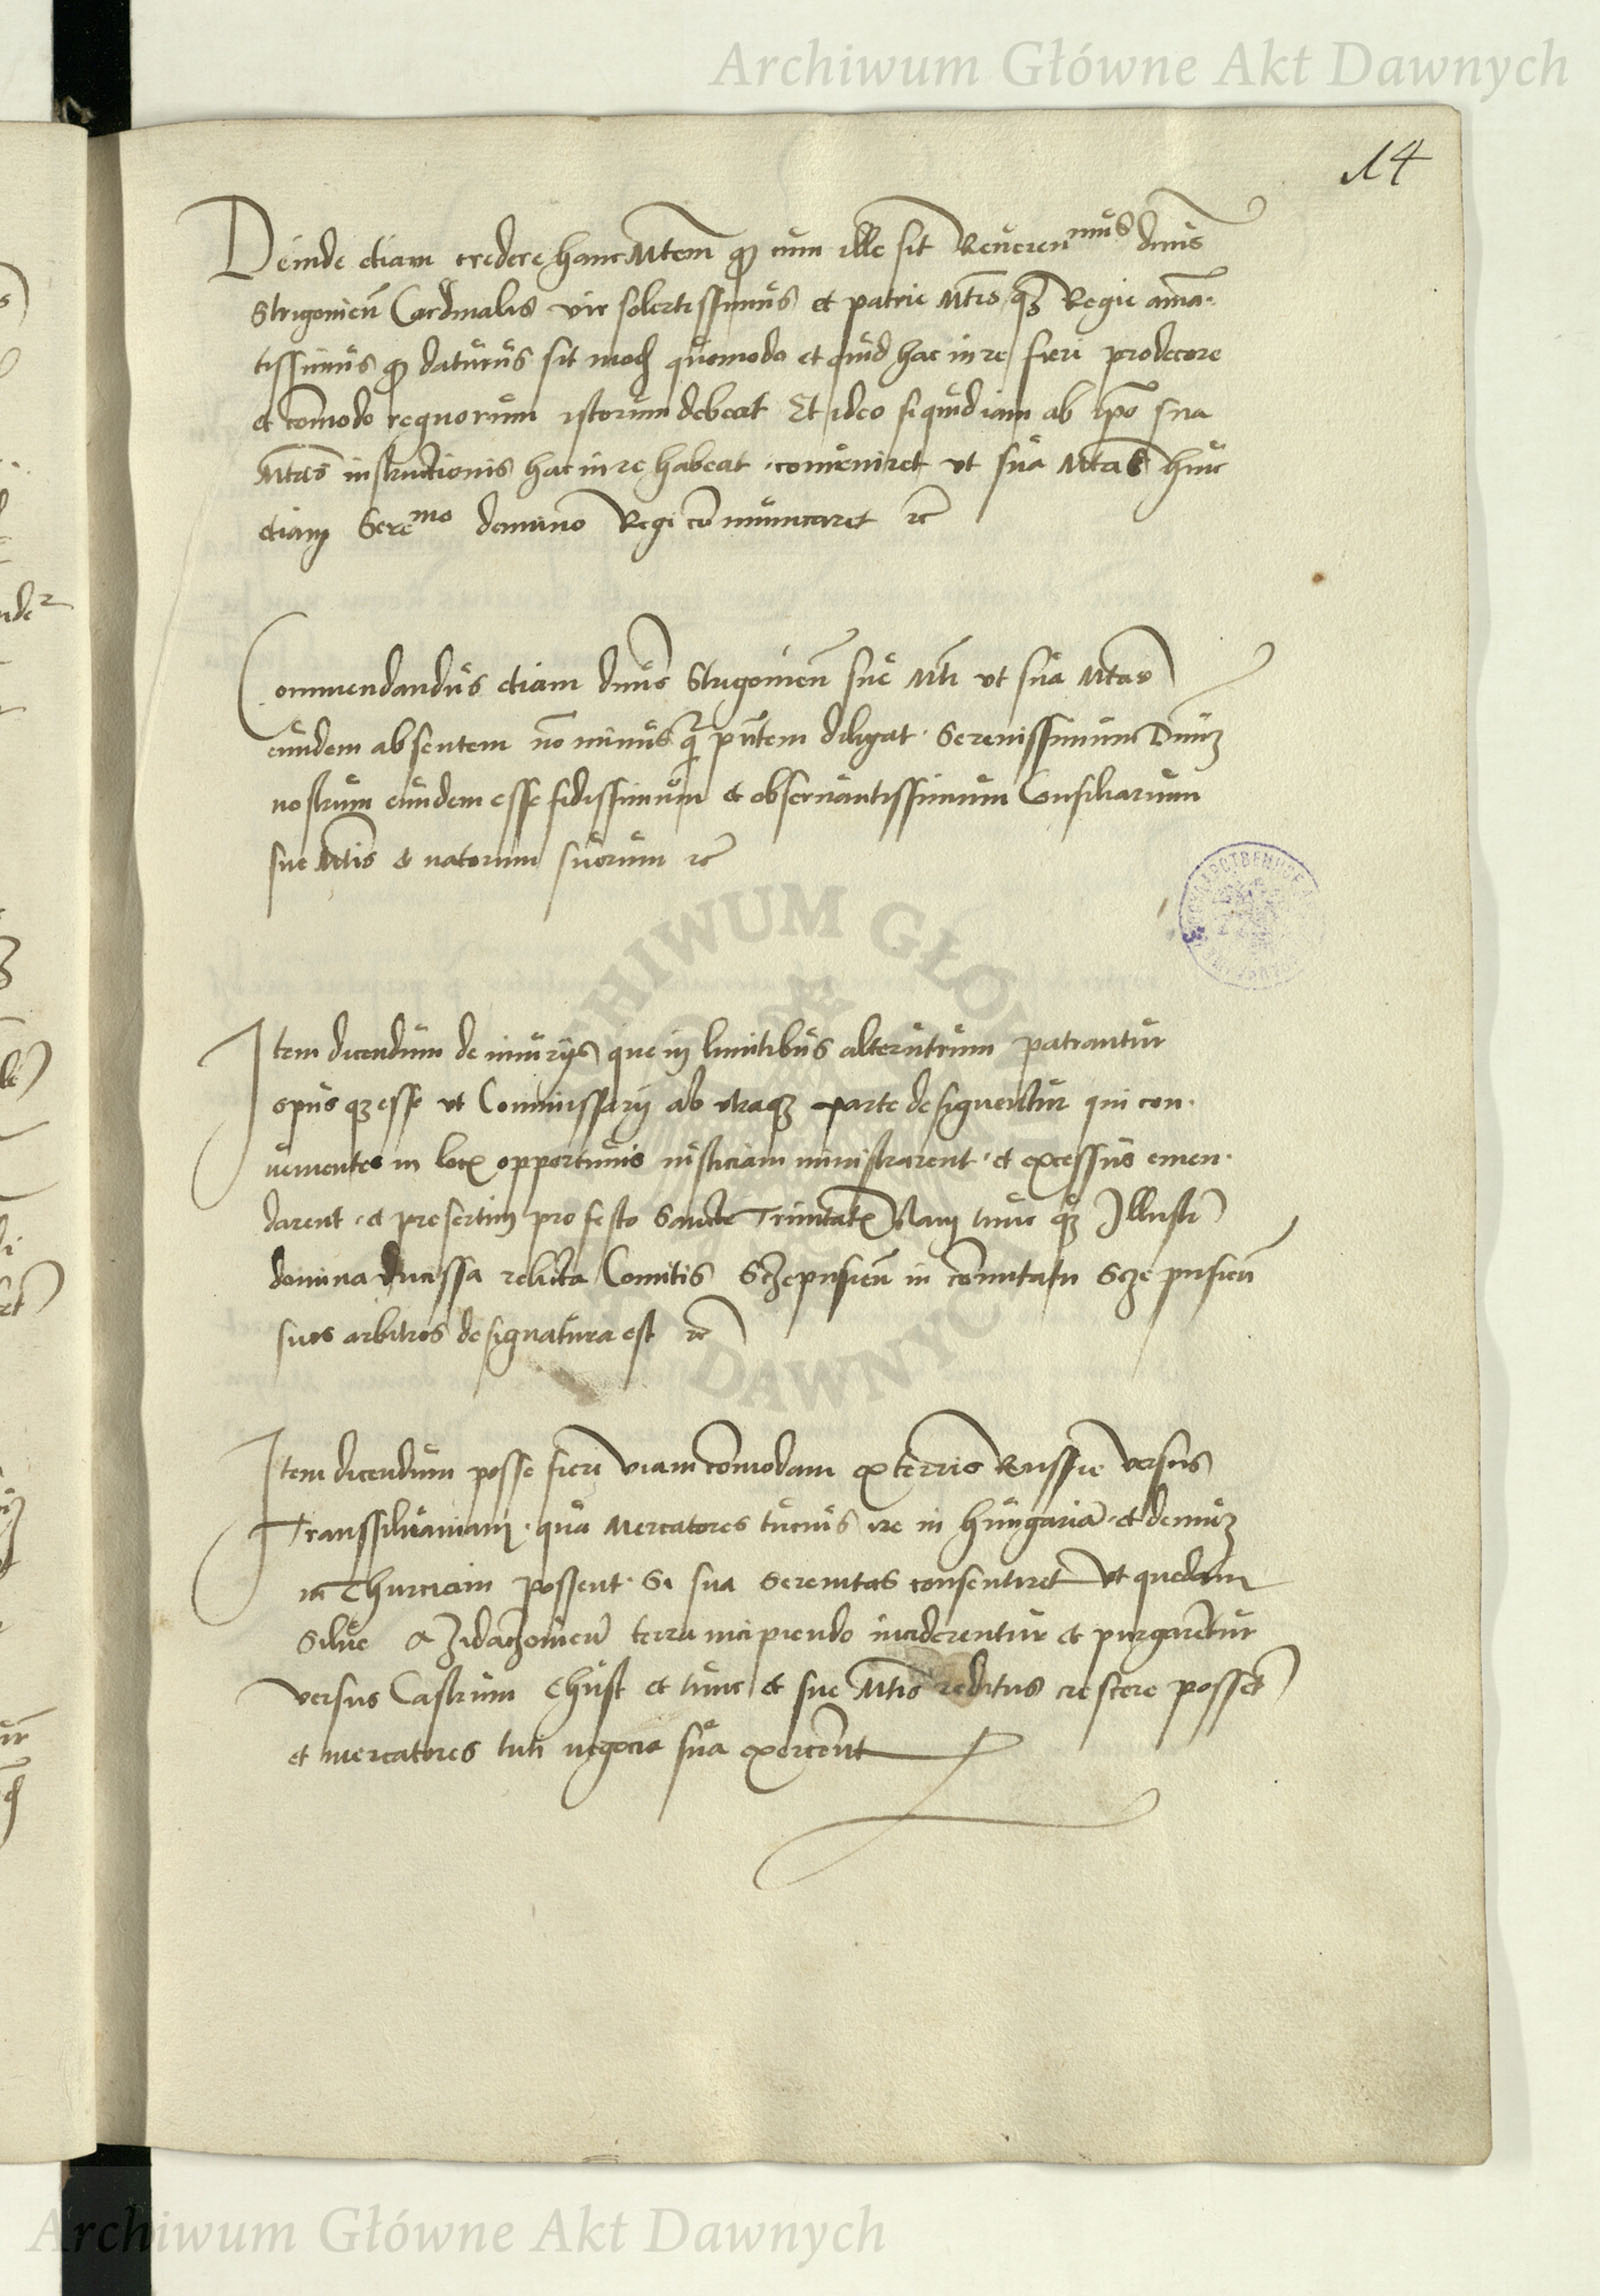 Archiwum Główne Akt Dawnych
14
Deinde etiam credere hanc Mtem qđ cum ille sit Reueren mus dnus
Strigonien Cardinalis vir solertissimus et patrie Mtis qz Regie ama-
tissimus qđ daturus sit mod quomodo et quid hac in re fieri pro decore
et comodo regnorum istorum debeat Et ideo si quid iam ab ipo sua
Mtas instructionis hac in re habeat · conueniret vt sua Mtas huic
etiam Sere mo domino Regi comunicaret etc
Commendandus etiam dnus Strigonien sue Mti vt sua Mtas
eundem absentem no minus q pntem diligat · Serenissimum Dnuz
nostrum eundem esse fidissimum et obseruantissimum Consiliarium
sue Mtis et natorum suorum etc
Item dicendum de iniurijs que in limitibus alterutrum patrantur
opus qz esse vt Commissarij ab vtraqz parte designentur qui con-
uenientes in locis opportunis iusticiam ministrarent · et excessus emen-
darent · et presertim pro festo Sancte Trinitatis Nam tunc qz Illustr
domina ducissa relicta Comitis Sczepusien in comitatu Sczepusien
suos arbitros designatura est etc
Item dicendum posse fieri viam comodam ex terris Russie versus
Transsiluaniam · qua Mercatores tucius ire in Hungaria · et demuz
in Thurciam possent · Si sua Serenitas consentiret vt quedam
Silue a Zidaczouien terra incipiendo inciderentur et purgarentur
versus Castrum Chust et tunc et sue Mtis reditus crescere possēt
et mercatores tuti negocia sua exercent
ARCHIWUM GŁÓWNE AKT DAWNYCH
Archiwum Główne Akt Dawnych